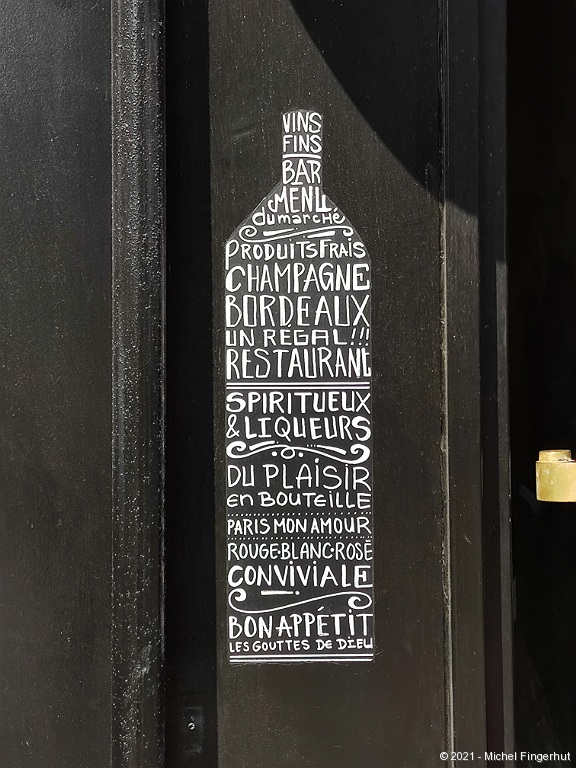 VINS
FINS
BAR
MENU
du marché
PRODUITS FRAIS
CHAMPAGNE
BORDEAUX
UN RÉGAL!!!
RESTAURANT
SPIRITUEUX
& LIQUEURS
DU PLAISIR
en BOUTEILLE
PARIS MON AMOUR
ROUGE·BLANC·ROSÉ
CONVIVIALE
BON APPÉTIT
LES GOUTTES DE DIEU
© 2021 - Michel Fingerhut